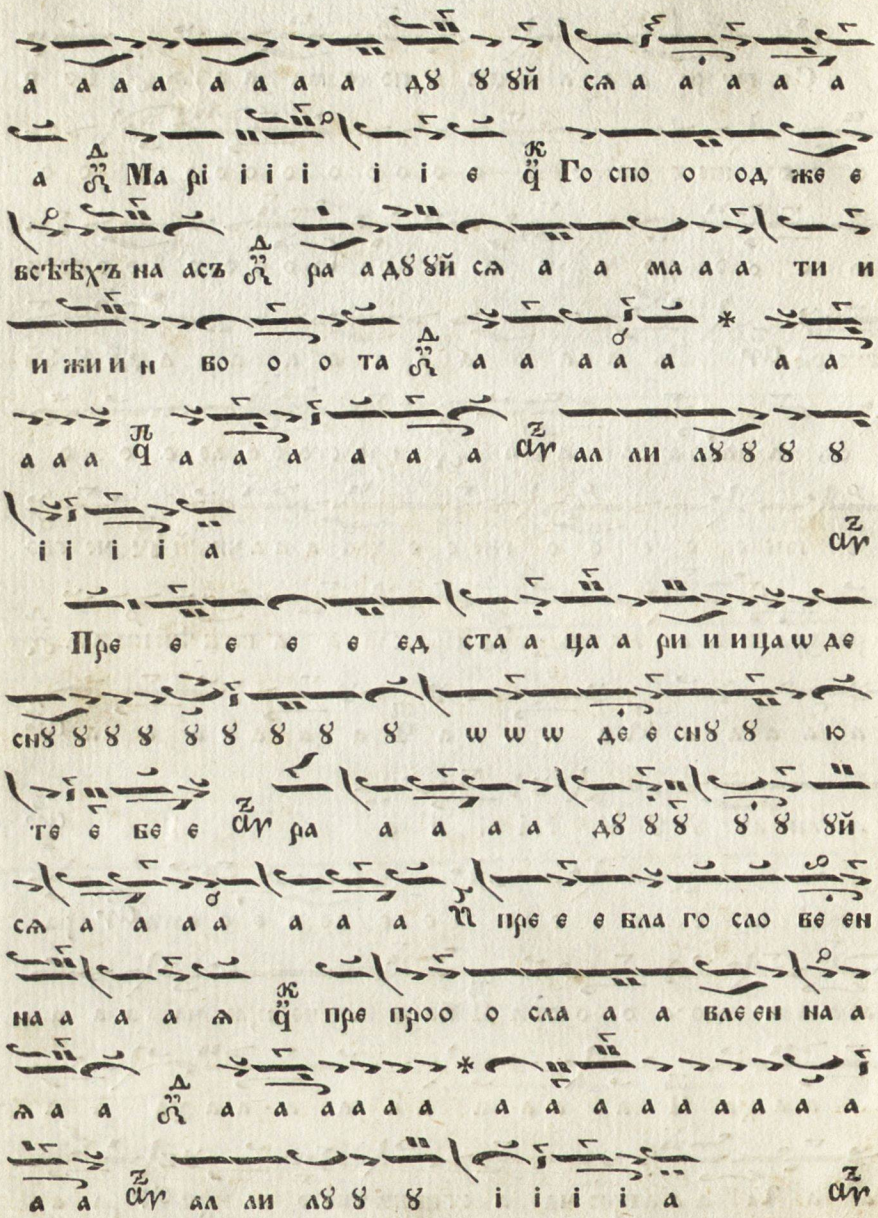 а а а а а а а а дꙋ ꙋ ꙋй сѧ а а а а а
а Ма рі і і і і і е Го спо о од же е
всѣѣхъ на асъ ра а дꙋ ꙋй сѧ а а ма а а ти и
и жи и н во о о та а а а а а * а а
а а а а а а а а а ал ли лꙋ ꙋ ꙋ ꙋ
і і і і а
Пре е е е е ед ста а ца а ри и и ца ѡ де
снꙋ ꙋ ꙋ ꙋ ꙋ ꙋ ꙋ ꙋ ꙋ ѡ ѡ ѡ де е снꙋ ꙋ ю
те е бе е ра а а а а дꙋ ꙋ ꙋ ꙋ ꙋ ꙋй
сѧ а а а а а а а пре е е бла го сло ве ен
на а а а ѧ пре про о о сла а а вле ен на а
ѧ а а а а а а а а * а а а а а а а а
а а ал ли лꙋ ꙋ ꙋ і і і і а